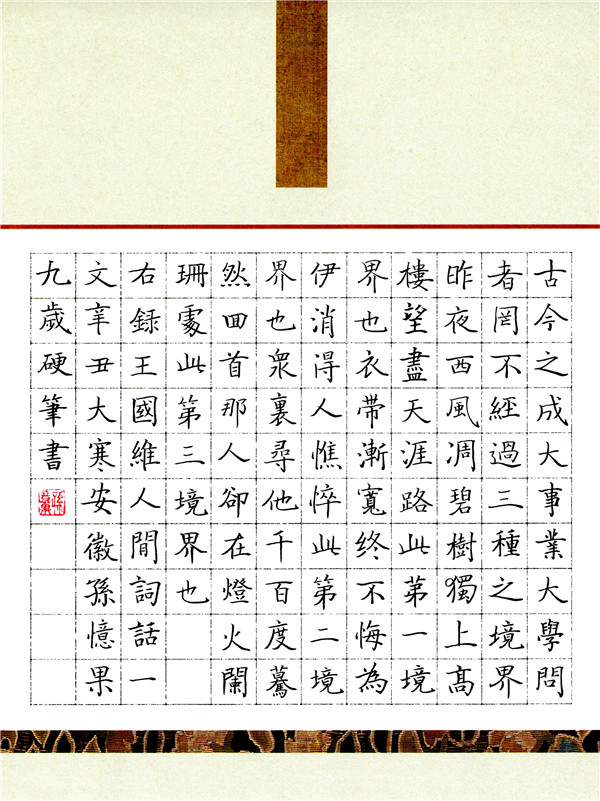 古今之成大事業大學問
者罔不經過三種之境界
昨夜西風凋碧樹獨上髙
樓望盡天涯路此第一境
界也衣帶漸寬終不悔為
伊消得人憔悴此第二境
界也衆裏尋他千百度驀
然囬首那人卻在燈火闌
珊處此第三境界也
右録王國維人間詞話一
文辛丑大寒安徽孫憶果
九歲硬筆書